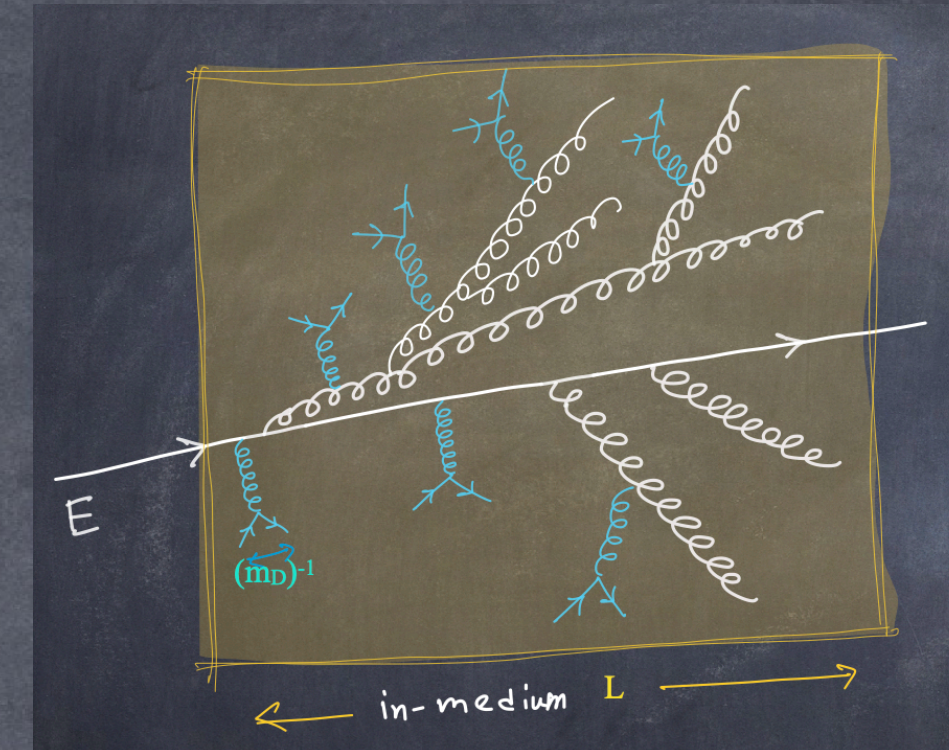 E
(mD)-1
in-medium L